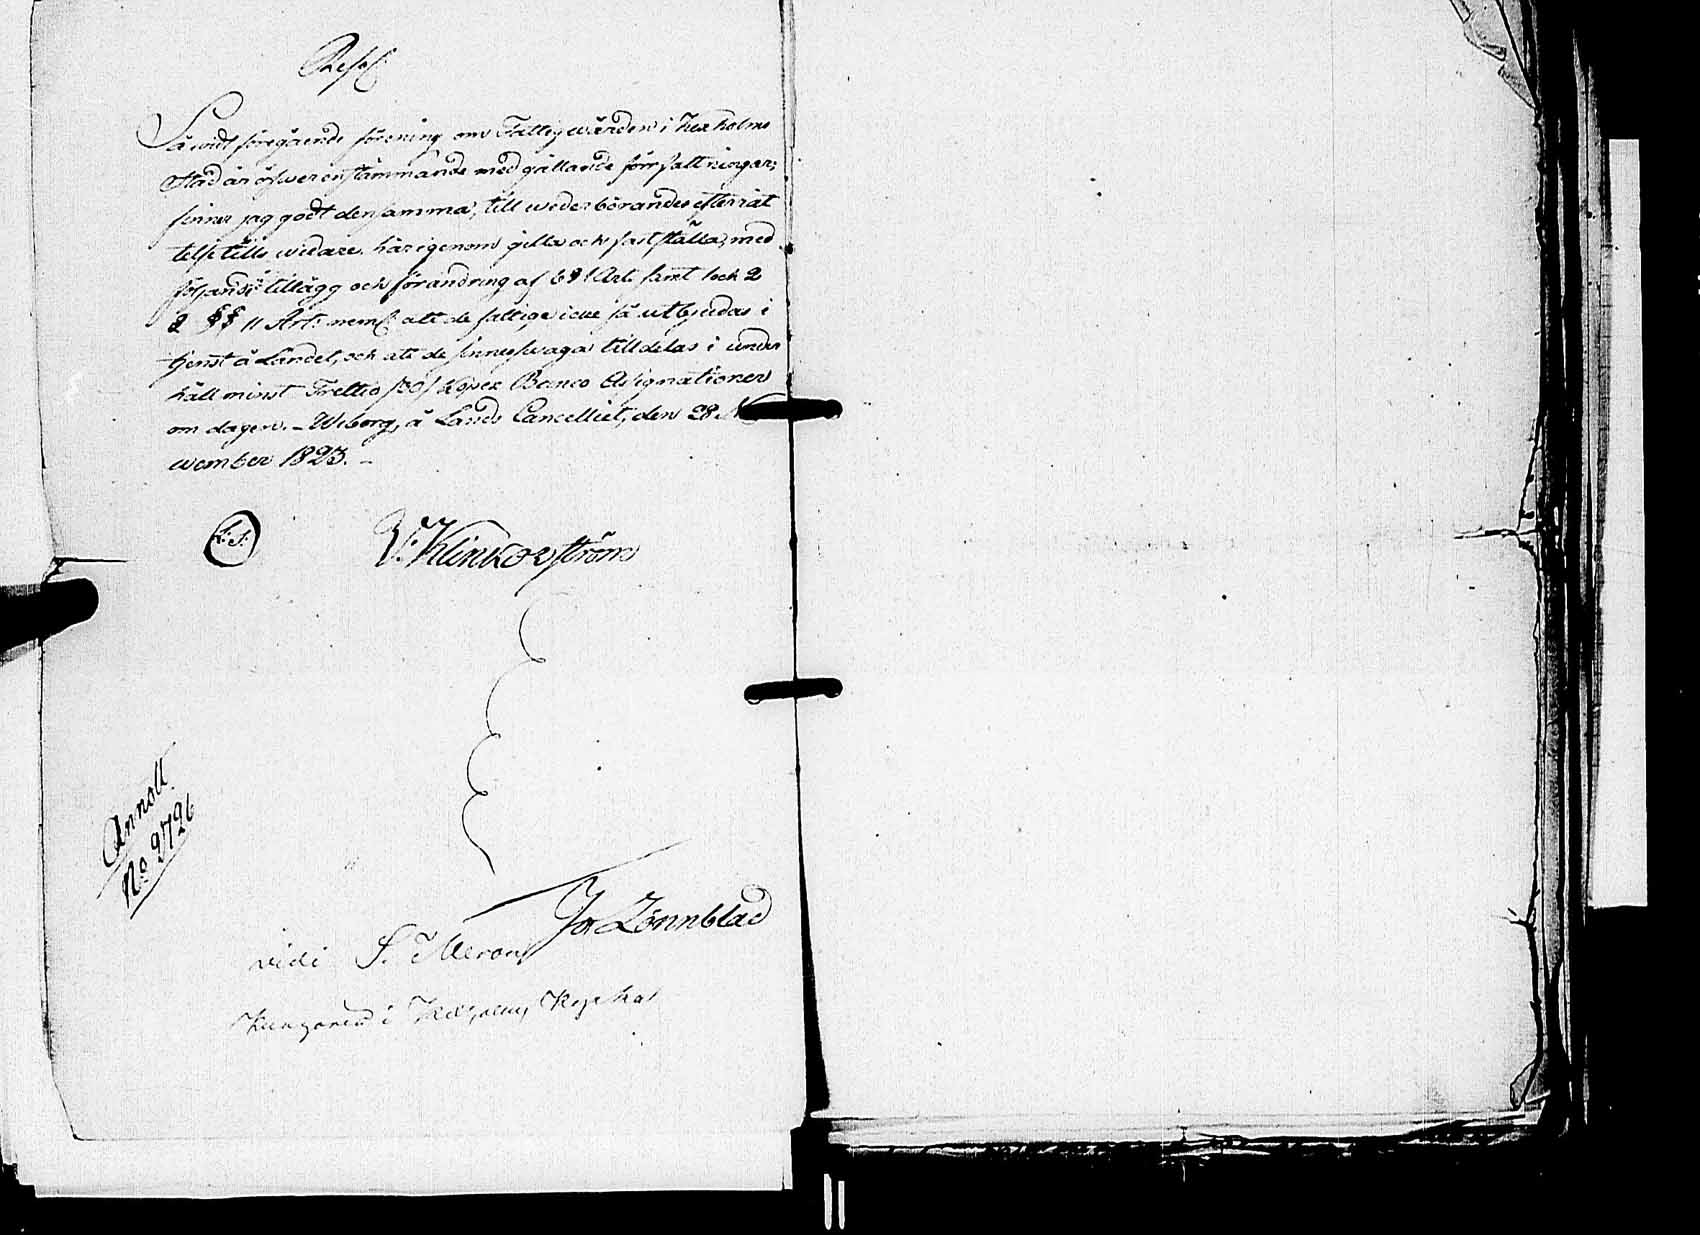 Resol:
Så widt föregående förening om Fattigwården i Kexholms
Stad är öfwerensstämmande med gällande författningar;
finner jag godt densamma, till wederbörandes efterrät
telse tills widare härigenom gilla och fastställa, med
följande tillägg och förändring af 6 § 1 Art: samt 1 och 2
§§ 11 Art: neml: att de fattige icke få utbjudas i
tjenst å Landet, och att de sinnesswaga tilldelas i under
håll minst Trettio /30/ Kopek Banco Assignationer
om dagen. – Wiborg, å Lands Cancelliet, den 28 No
wember 1823. –
L: S:
V: Klinkowström
Jo Lönnblad
Annott
No: 2726
vidi S. Meron
i